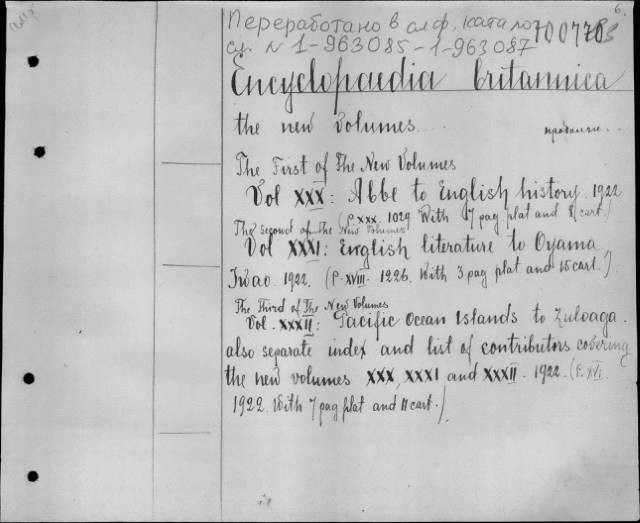 6.
Переработано в алф. катало
см. N 1-963085-1-963087
Encyclopaedia britannica
the new volumes...
The First of The New Volumes
Vol XXX: Abbe to English history. 1922
(P. XXX. 1029 With 7 pag plat and 8 cart.)
The second of the New Volumes
Vol XXXI: English literature to Oyama,
Iwao. 1922. (P. XVIII. 1226. With 3 pag plat and 15 cart.)
The Third of The New Volumes
Vol. XXXII: Pacific Ocean Islands to Zuloaga.
also separate index and list of contributors covering
the new volumes XXX, XXXI and XXXII. 1922. (P. XVI.
1922. With 7 pag plat and 11 cart.)